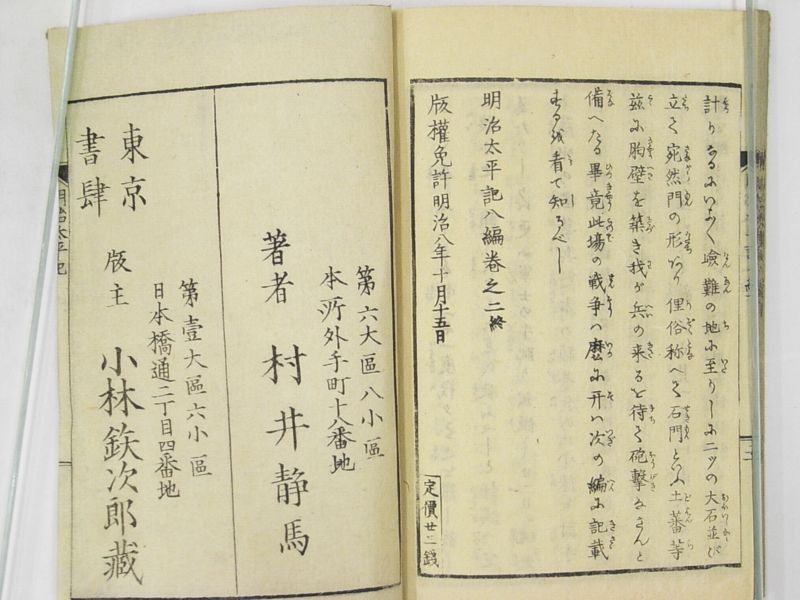 計りなるにいよ〳〵嶮難の地に至りしに二ツの大石並び
立て宛然門の形あり俚俗称へて石門といふ土蕃等
茲に胸壁を築き我が兵の来るを待て砲撃なさんと
備へたる畢竟此場の戦争ハ麿に開ハ次の編に記載
するを看て知るべし
明治太平記八編巻之二終
版權免許明治八年十月十五日
定價廿二錢
第六大區八小區
本所外手町十八番地
著者 村井静馬
第壹大區六小區
日本橋通二丁目四番地
版主 小林鉄次郎藏
東京
書肆
明治太平記